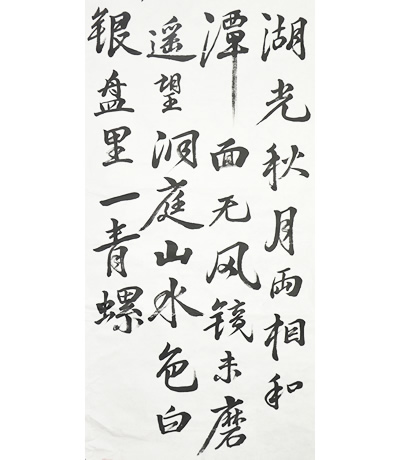 湖光秋月两相和
潭面无风镜未磨
遥望洞庭山水色白
银盘里一青螺